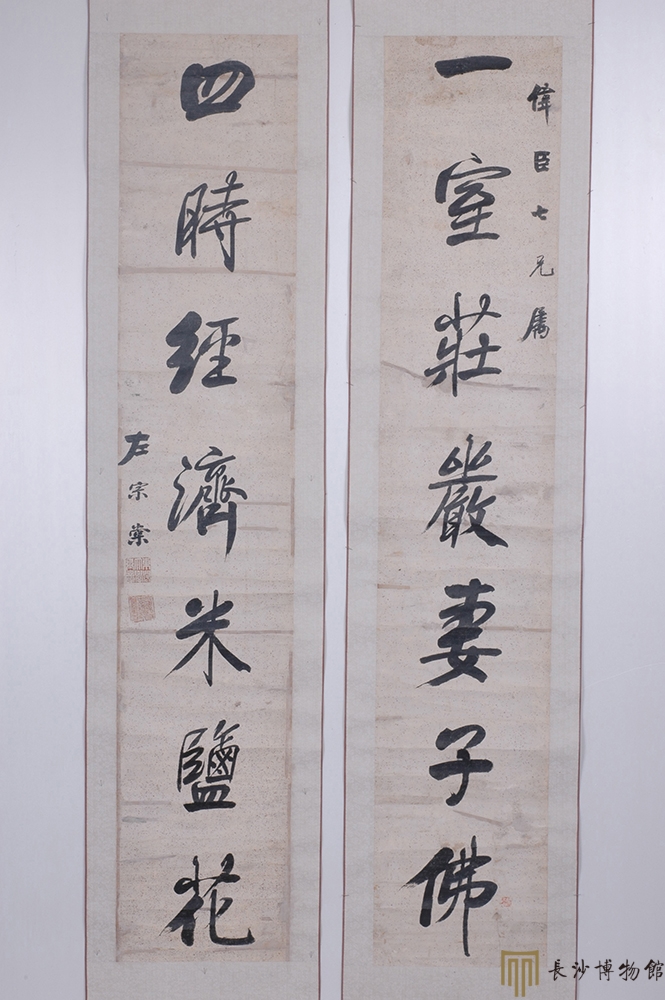 偉臣七兄屬
一室莊嚴妻子佛
四時經濟米鹽花
左宗棠
長沙博物館